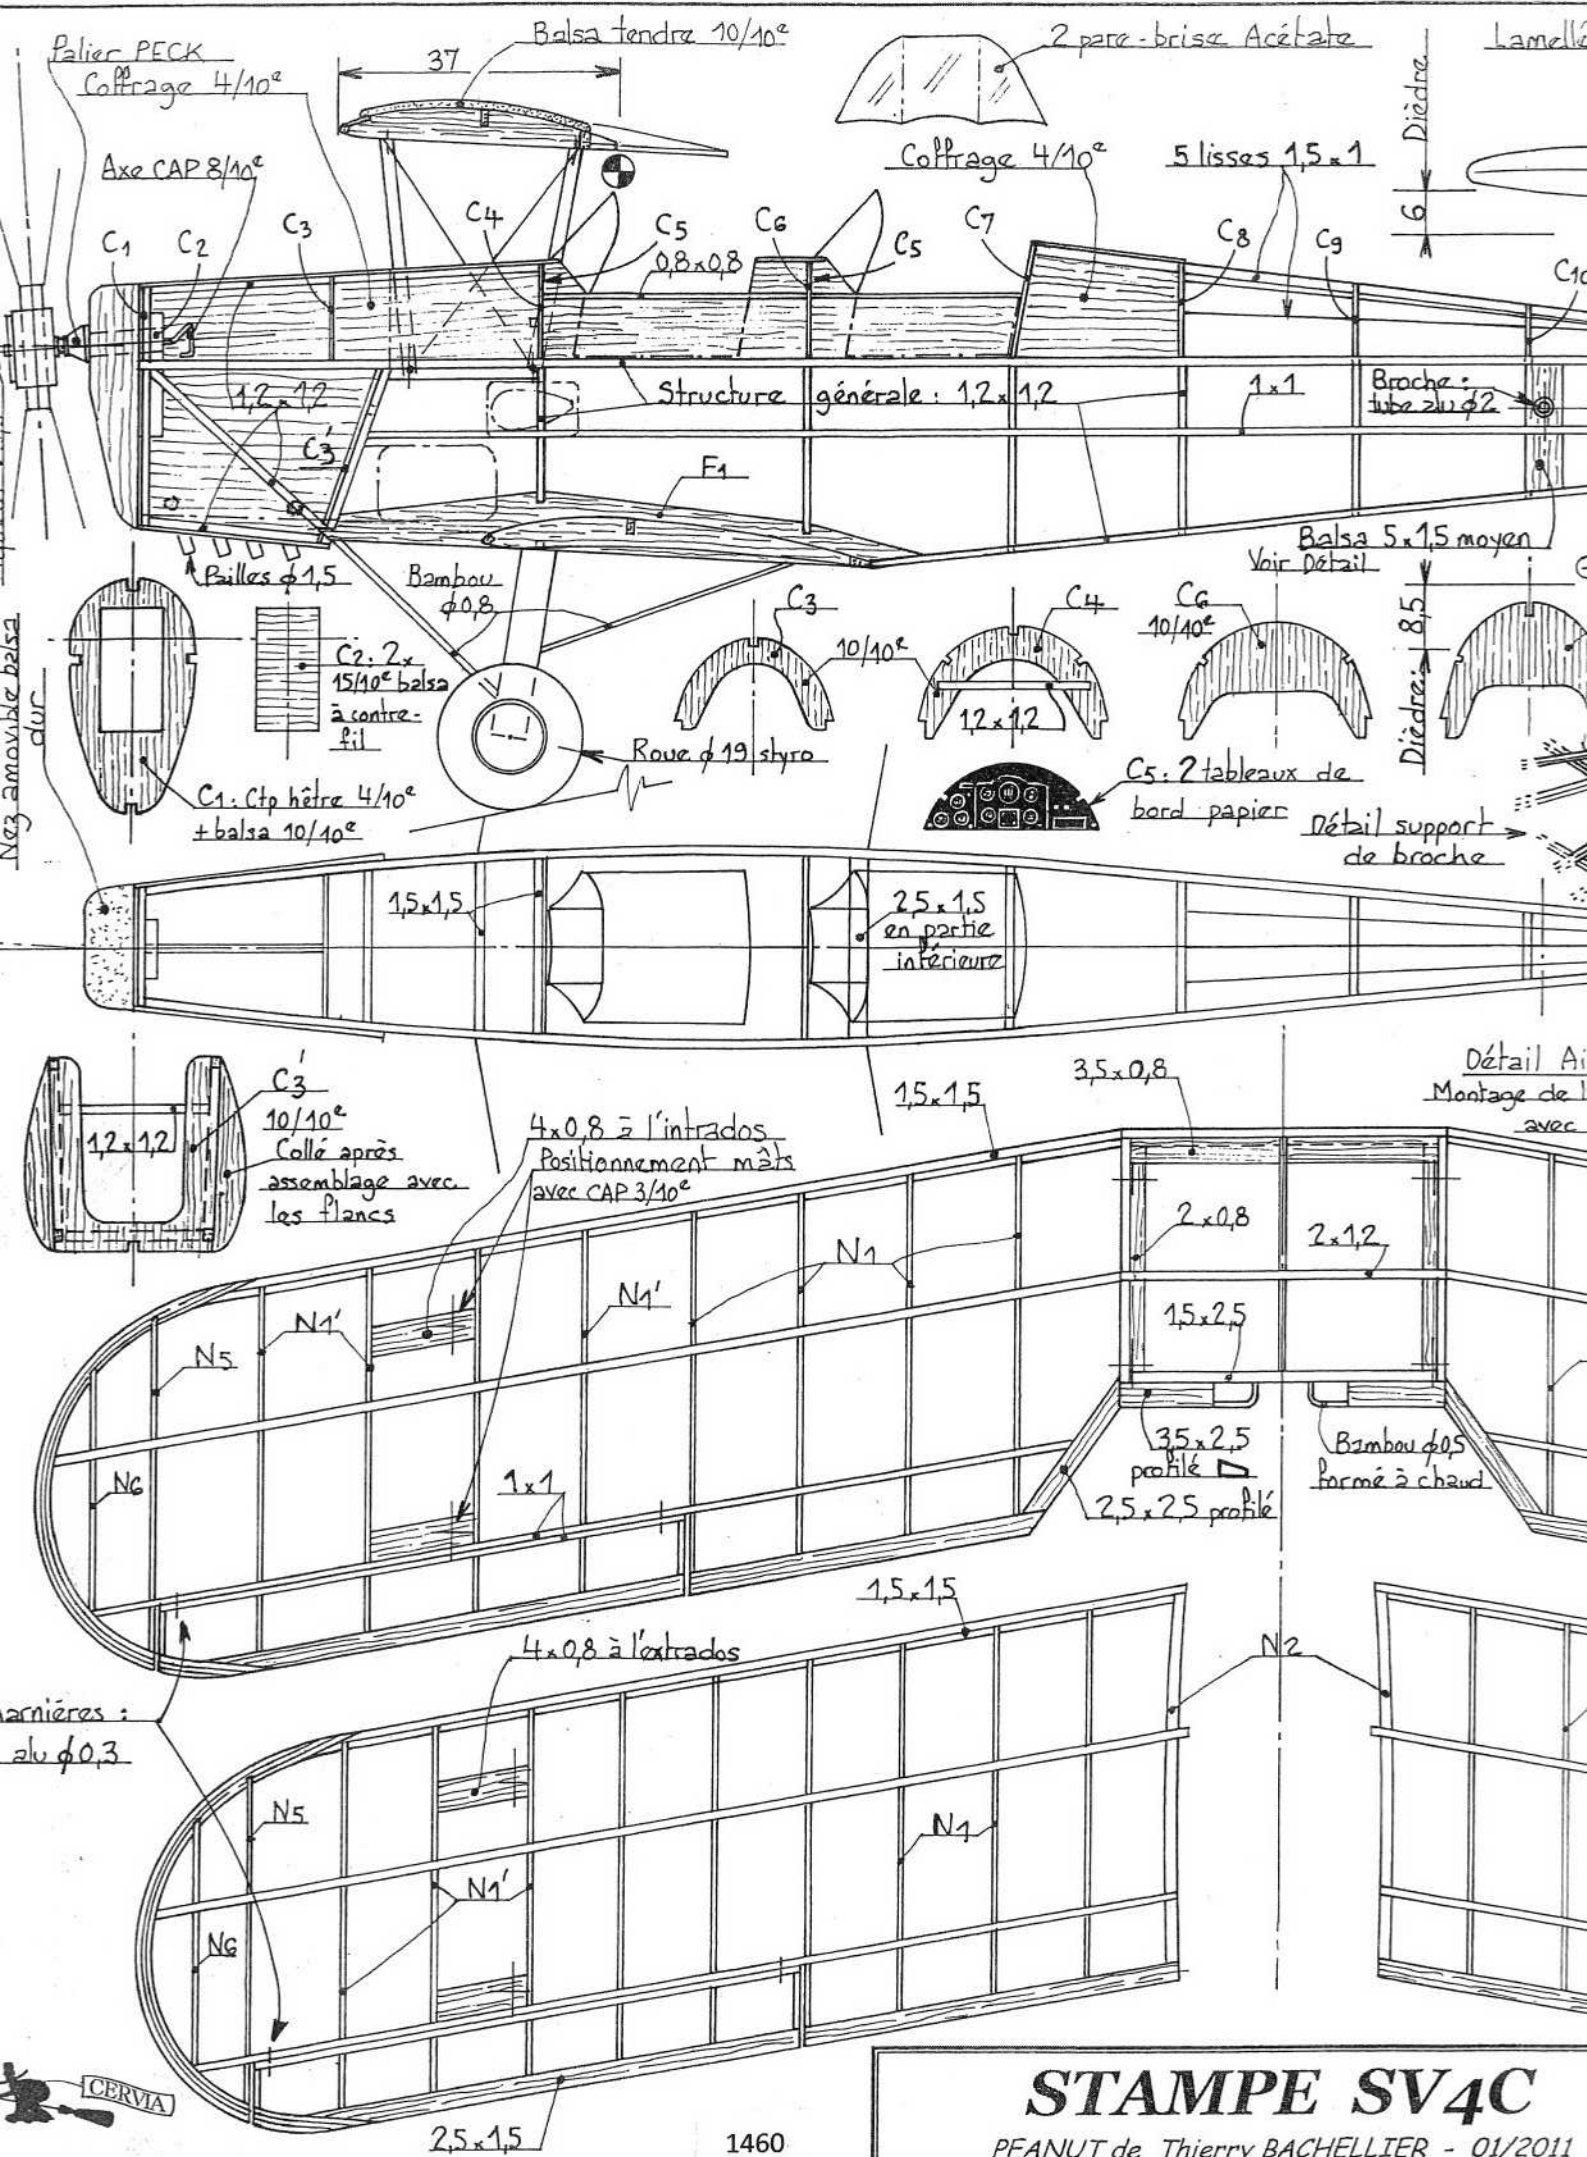 Palier PECK
Coffrage 4/10e
Balsa tendre 10/10e
37
2 pare-brise Acétate
Lamellé
Dièdre
6
Axe CAP 8/10e
Coffrage 4/10e
5 lisses 1,5 x 1
C1
C2
C3
C4
C5
0,8 x 0,8
C6
C5
C7
C8
C9
C10
1,2 x 1,2
C'3
Structure générale : 1,2 x 1,2
1 x 1
Broche :
tube alu ϕ2
F1
Pailles ϕ 1,5
Bambou
ϕ0,8
Balsa 5 x 1,5 moyen
Voir Détail
Nez amovible balsa
dur
C2: 2x
15/10e balsa
à contre-
fil
C1: Ctp hêtre 4/10e
+ balsa 10/10e
Roue ϕ 19 styro
C3
10/10e
C4
1,2 x 1,2
C6
10/10e
Dièdre: 8,5
C5: 2 tableaux de
bord papier
Détail support
de broche
1,5 x 1,5
2,5 x 1,5
en partie
inférieure
C3'
10/10e
Collé après
assemblage avec
les flancs
1,2 x 1,2
4 x 0,8 à l'intrados
Positionnement mâts
avec CAP 3/10e
1,5 x 1,5
3,5 x 0,8
Détail Ai
Montage de l
avec
2 x 0,8
2 x 1,2
1,5 x 2,5
N1
N1'
N1'
N5
N6
1 x 1
3,5 x 2,5
profilé
2,5 x 2,5 profilé
Bambou ϕ0,5
formé à chaud
1,5 x 1,5
4 x 0,8 à l'extrados
N2
arnières :
alu ϕ 0,3
N5
N1
N1'
N6
CERVIA
2,5 x 1,5
1460
STAMPE SV4C
PEANUT de Thierry BACHELLIER - 01/2011